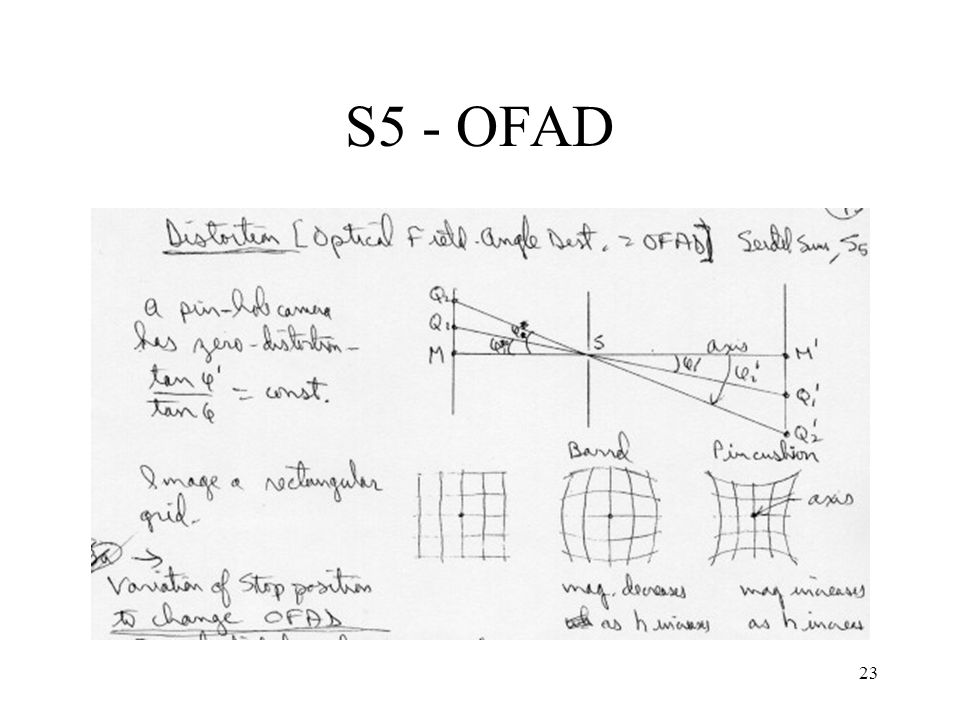 S5 - OFAD
Distortion [Optical Field-Angle Dist. = OFAD] Seidel Sum, S5
a pin-hole camera
has zero-distortion-
tan φ' / tan φ = const.
Q2
Q1
M
φ
S
axis
φ1'
φ2'
M'
Q1'
Q2'
Image a rectangular
grid.
Barrel
Pincushion
axis
→
Variation of Stop position
to change OFAD
mag. decreases
as h increases
mag increases
as h increas
23